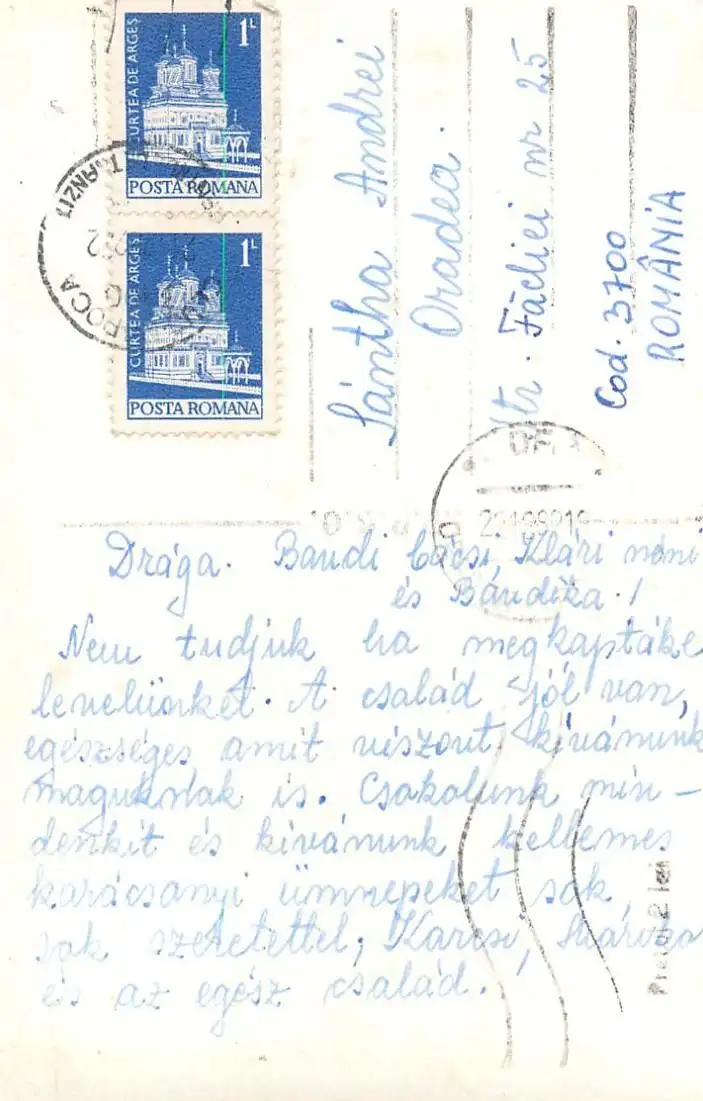 1L
CURTEA DE ARGEȘ
POSTA ROMANA
1L
CURTEA DE ARGEȘ
POSTA ROMANA
TRANZIT
POCA
Sántha Andrei
Oradea.
Str. Făcliei nr 25
Cod. 3700
ROMÂNIA
Drága. Bandi bácsi, Klári néni
és Bandika!
Nem tudjuk ha megkaptáke
levelünket. A család jól van,
egészséges amit viszont kívánunk
maguknak is. Csakolunk min-
denkit és kívánunk kellemes
karácsanyi ümnepeket sak
sak szeretettel, Karcsi,
és az egész család.!
2 lei